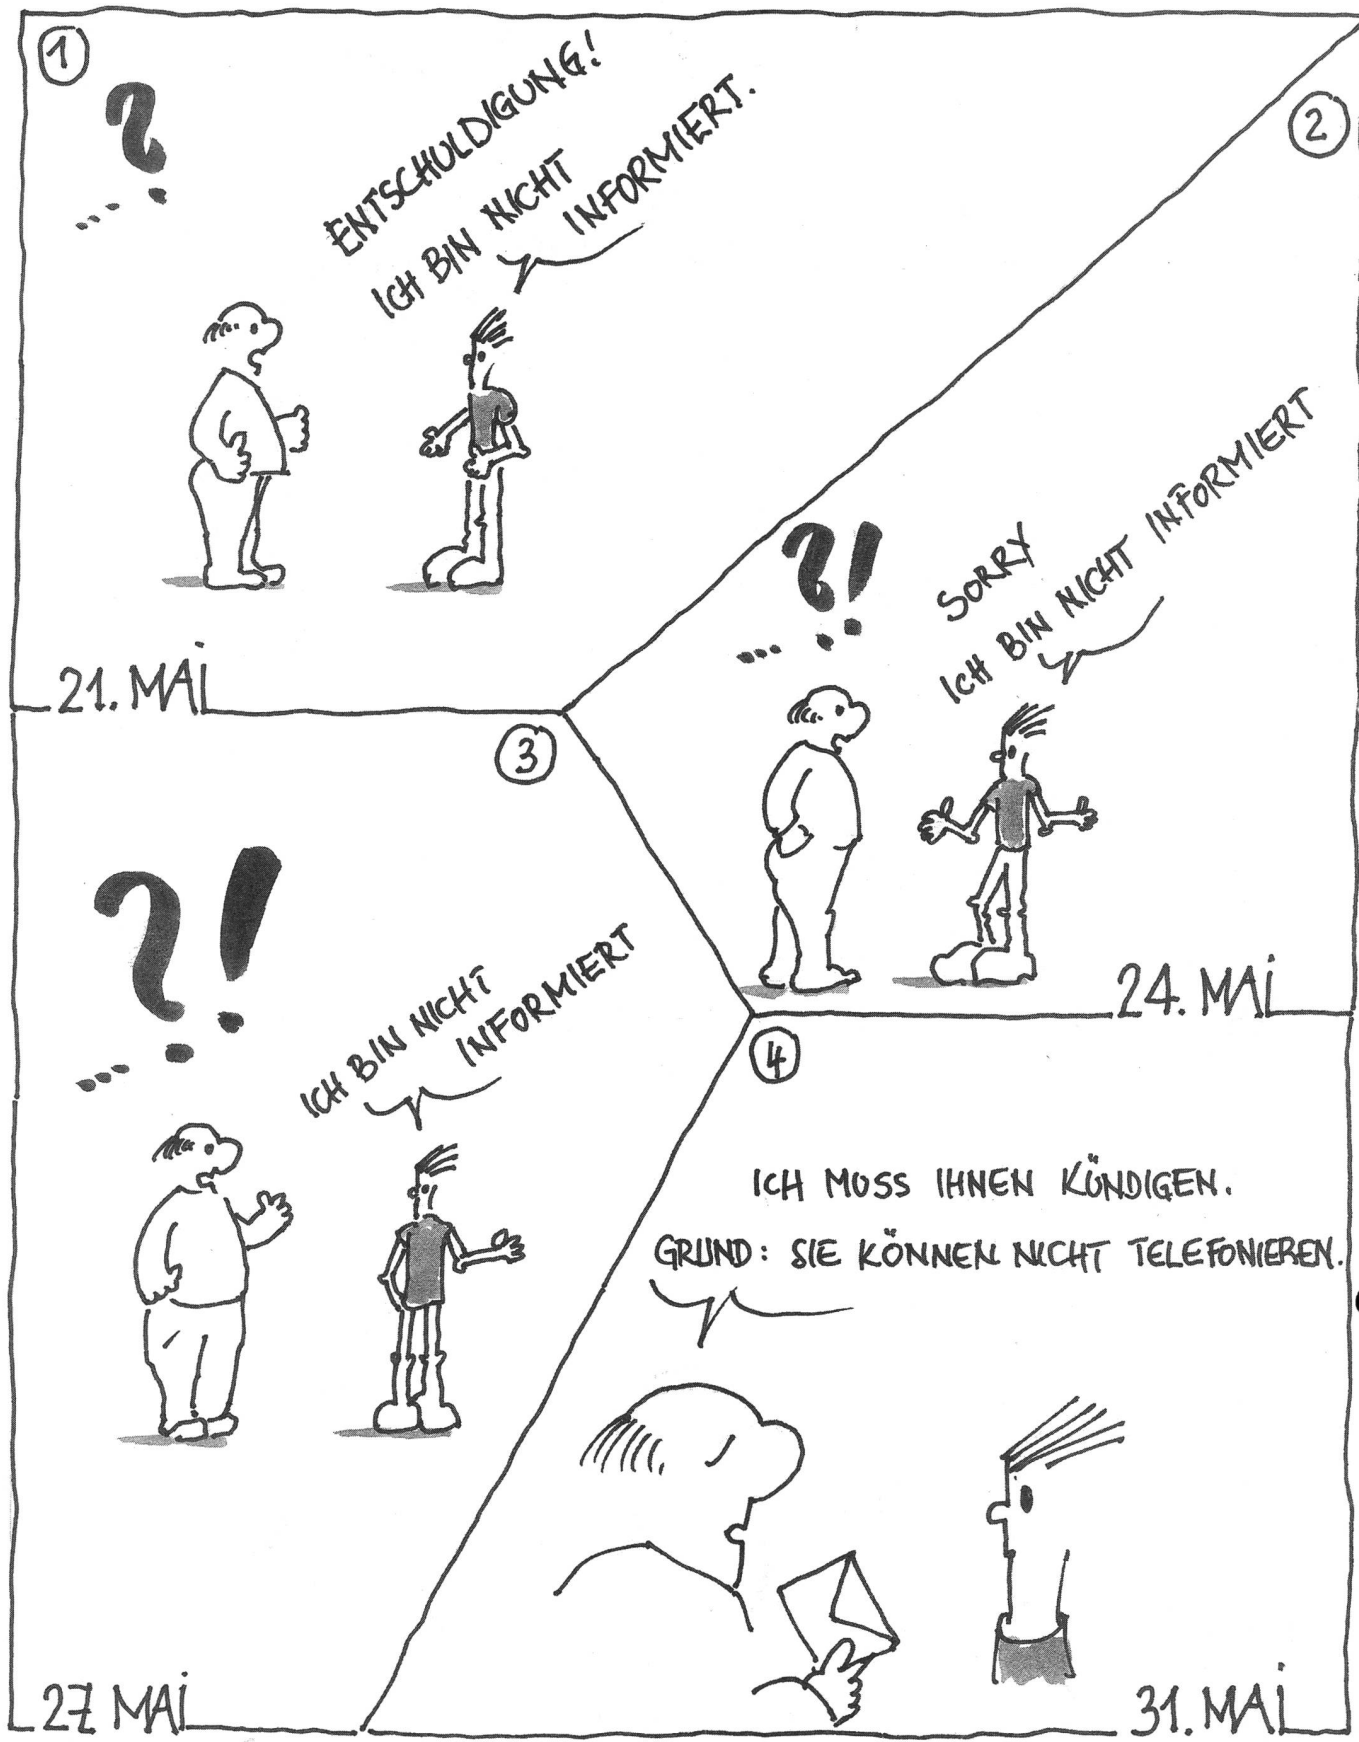 1
? ...
ENTSCHULDIGUNG!
ICH BIN NICHT
INFORMIERT.
21. MAI
2
?! ...
SORRY
ICH BIN NICHT INFORMIERT
24. MAI
3
?! ...
ICH BIN NICHT
INFORMIERT
27 MAI
4
ICH MUSS IHNEN KÜNDIGEN.
GRUND: SIE KÖNNEN NICHT TELEFONIEREN.
31. MAI